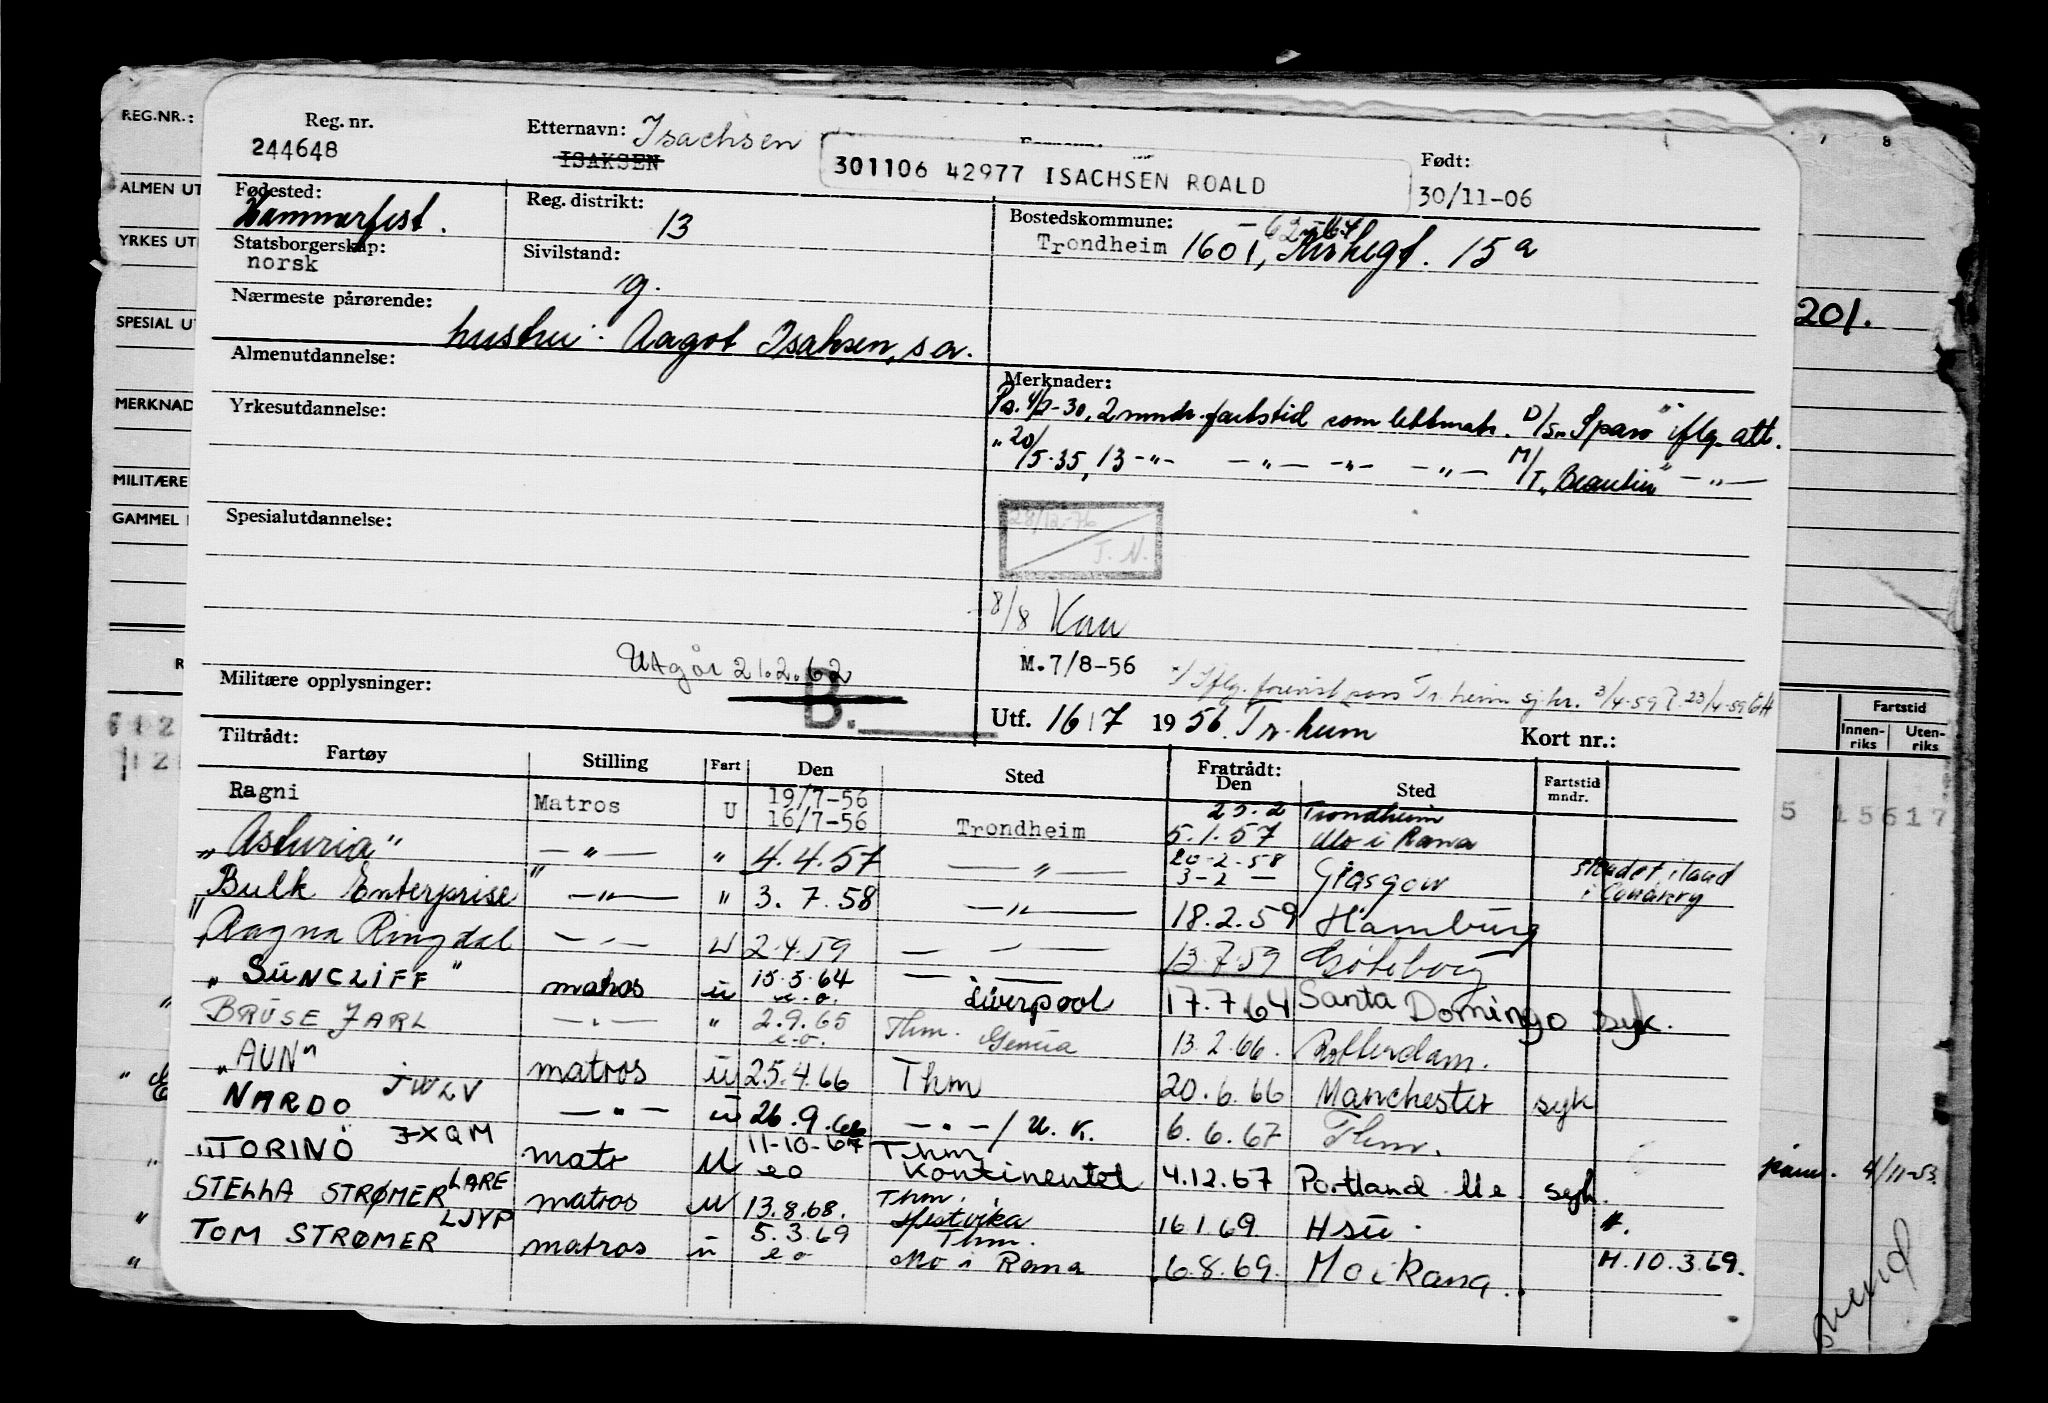 REG.NR.:
ALMEN UT
YRKES UT
SPESIAL U
MERKNAD
MILITÆRE
GAMMEL
7 8
201.
Reg. nr.
244648
Etternavn: Isachsen
ISAKSEN
301106 42977 ISACHSEN ROALD
Født:
30/11-06
Fødested:
Hammerfest.
Reg. distrikt:
13
Bostedskommune:
62-67
Trondheim 1601, Kirkegt. 15a
Statsborgerskap:
norsk
Sivilstand:
g.
Nærmeste pårørende:
hustru: Aagot Isaksen, s a.
Almenutdannelse:
Merknader:
Pr. 4/2-30, 2 mndr. fartstid som lettmatr. D/S „Sparo" iflg. att.
" 20/5-35, 13 -"- -"- -"- -"- M/T „Beaulieu" -"-
Yrkesutdannelse:
28/12-76
T. N.
Spesialutdannelse:
8/8 Kau
M.7/8-56
Utgår 21.2.62
B.
Militære opplysninger:
Utf. 16/7 1956. Tr.heim
Kort nr.:
Fartstid
Innen-riks Uten-riks
Tiltrådt:
Fartøy Stilling Fart Den Sted Fratrådt: Den Sted Fartstid mndr.
Ragni Matros U 19/7-56 16/7-56 Trondheim 25.2 Trondheim 5.1.57 Mo i Rana
„Asturia" -"- " 4.4.57 -"- 20-2-58 3-2 — Glasgow skadet i land i Conakry
„Bulk Enterprise" -"- " 3.7.58 -"- 18.2.59 Hamburg
„Ragna Ringdal -"- U 2.4.59 -"- 13.7.59 Göteborg
„SUNCLIFF" matros u 15.5.64 e.o. Liverpool 17.7.64 Santa Domingo syk.
BRUSE JARL -"- " 2.9.65 e.o. Thm. Genua 13.2.66. Rotterdam.
„AUN" JWLV matros u 25.4.66 Thm 20.6.66 Manchester syk
NARDO JXQM -"- u 26.9.66 -"- / U.K. 6.6.67 Thm.
„TORINO matr U 11-10-67 eo Thm Kontinentet 4.12.67 Portland Me syk.
STELLA STRØMER LARE matros U 13.8.68. Thm. Hestvika 16 1 69 Hsu.
TOM STRØMER LJYP matros u 5.3.69 eo Thm. Mo i Rana 6.8.69. Mo i Rana. M.10.3.69.
5 15617
4/11-53.